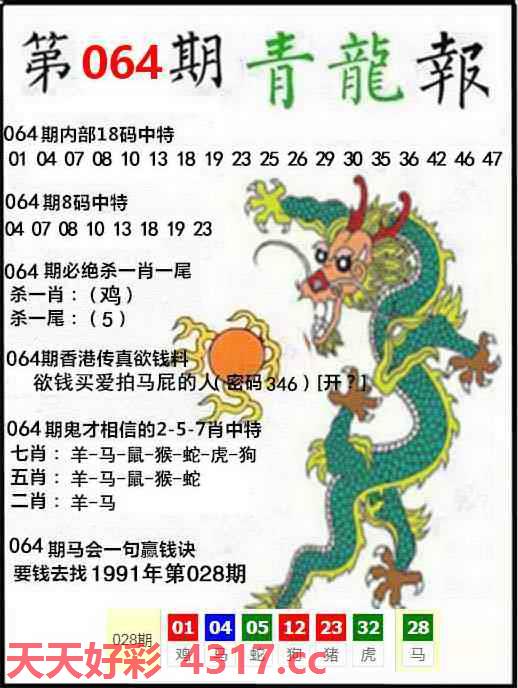 第064期 青龍報
064期内部18码中特
01 04 07 08 10 13 18 19 23 25 26 29 30 35 36 42 46 47
064期8码中特
04 07 08 10 13 18 19 23
064期必绝杀一肖一尾
杀一肖：（鸡）
杀一尾：（5）
064期香港传真欲钱料
欲钱买爱拍马屁的人（密码346）[开？]
064期鬼才相信的2-5-7肖中特
七肖：羊-马-鼠-猴-蛇-虎-狗
五肖：羊-马-鼠-猴-蛇
二肖：羊-马
064期马会一句赢钱诀
要钱去找1991年第028期
028期 01 04 05 12 23 32 28
鸡 马 蛇 狗 猪 虎 马
天天好彩 4317.cc